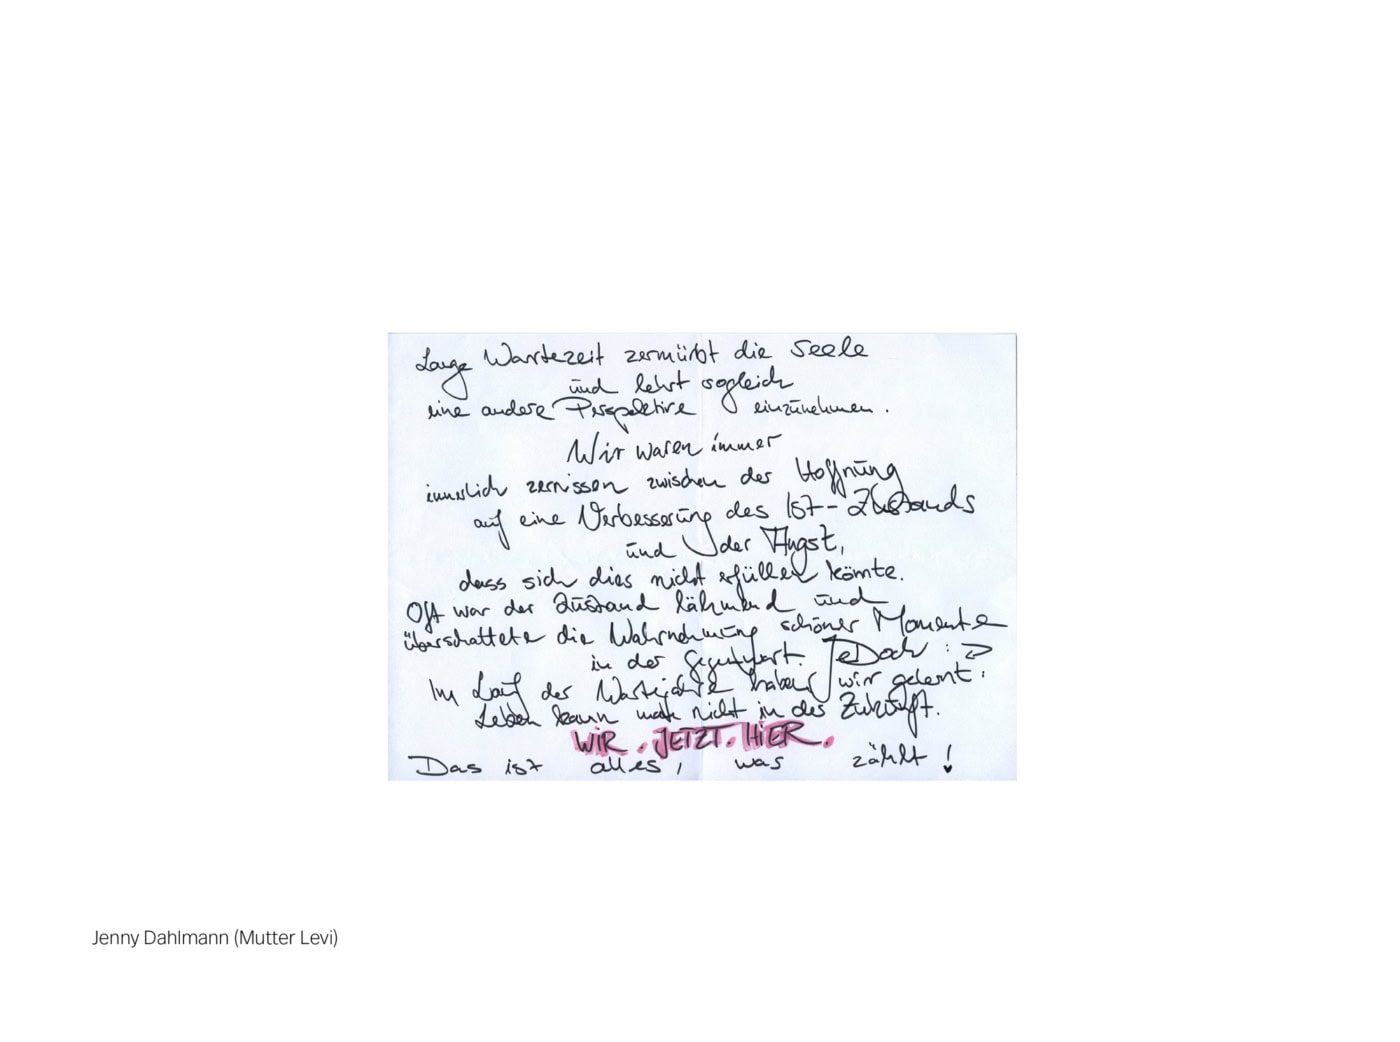 Lange Wartezeit zermürbt die Seele
und lehrt sogleich
eine andere Perspektive einzunehmen.
Wir waren immer
innerlich zerrissen zwischen der Hoffnung
auf eine Verbesserung des Ist-Zustands
und der Angst,
dass sich dies nicht erfüllen könnte.
Oft war der Zustand lähmend und
überschattete die Wahrnehmung schöner Momente
in der Gegenwart. JeDoch :
Im Lauf der Wartejahre haben wir gelernt:
Leben kann man nicht in der Zukunft.
WIR. JETZT. HIER.
Das ist alles, was zählt!
Jenny Dahlmann (Mutter Levi)